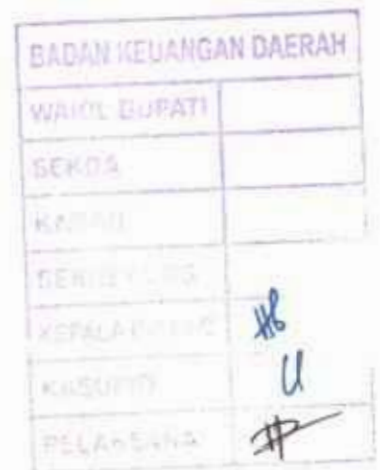 BADAN KEUANGAN DAERAH
WAKIL BUPATI
SEKDA
KABAN
KEPALA BIDANG
KASUBID
PELAKSANA